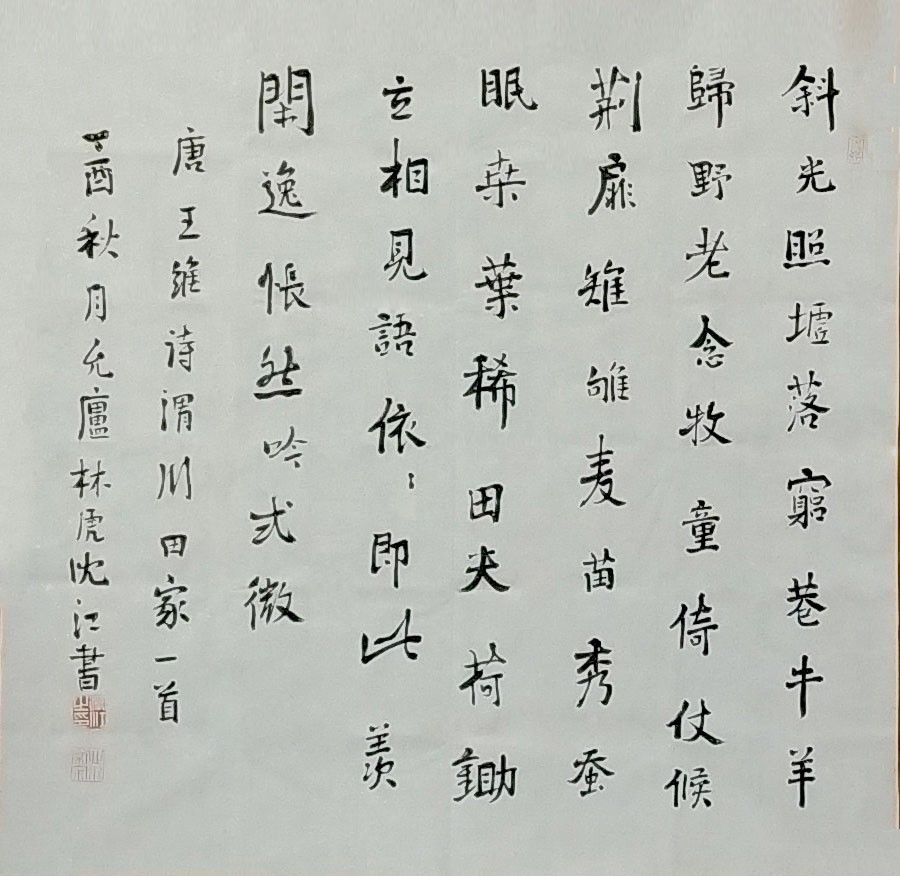 斜光照墟落窮巷牛羊
歸野老念牧童倚仗候
荊扉雉雊麦苗秀蚕
眠桒葉稀田夫荷鋤
立相見語依〻即此羨
閑逸悵然吟式微
唐王維诗渭川田家一首
酉秋月 廬林虎 江書